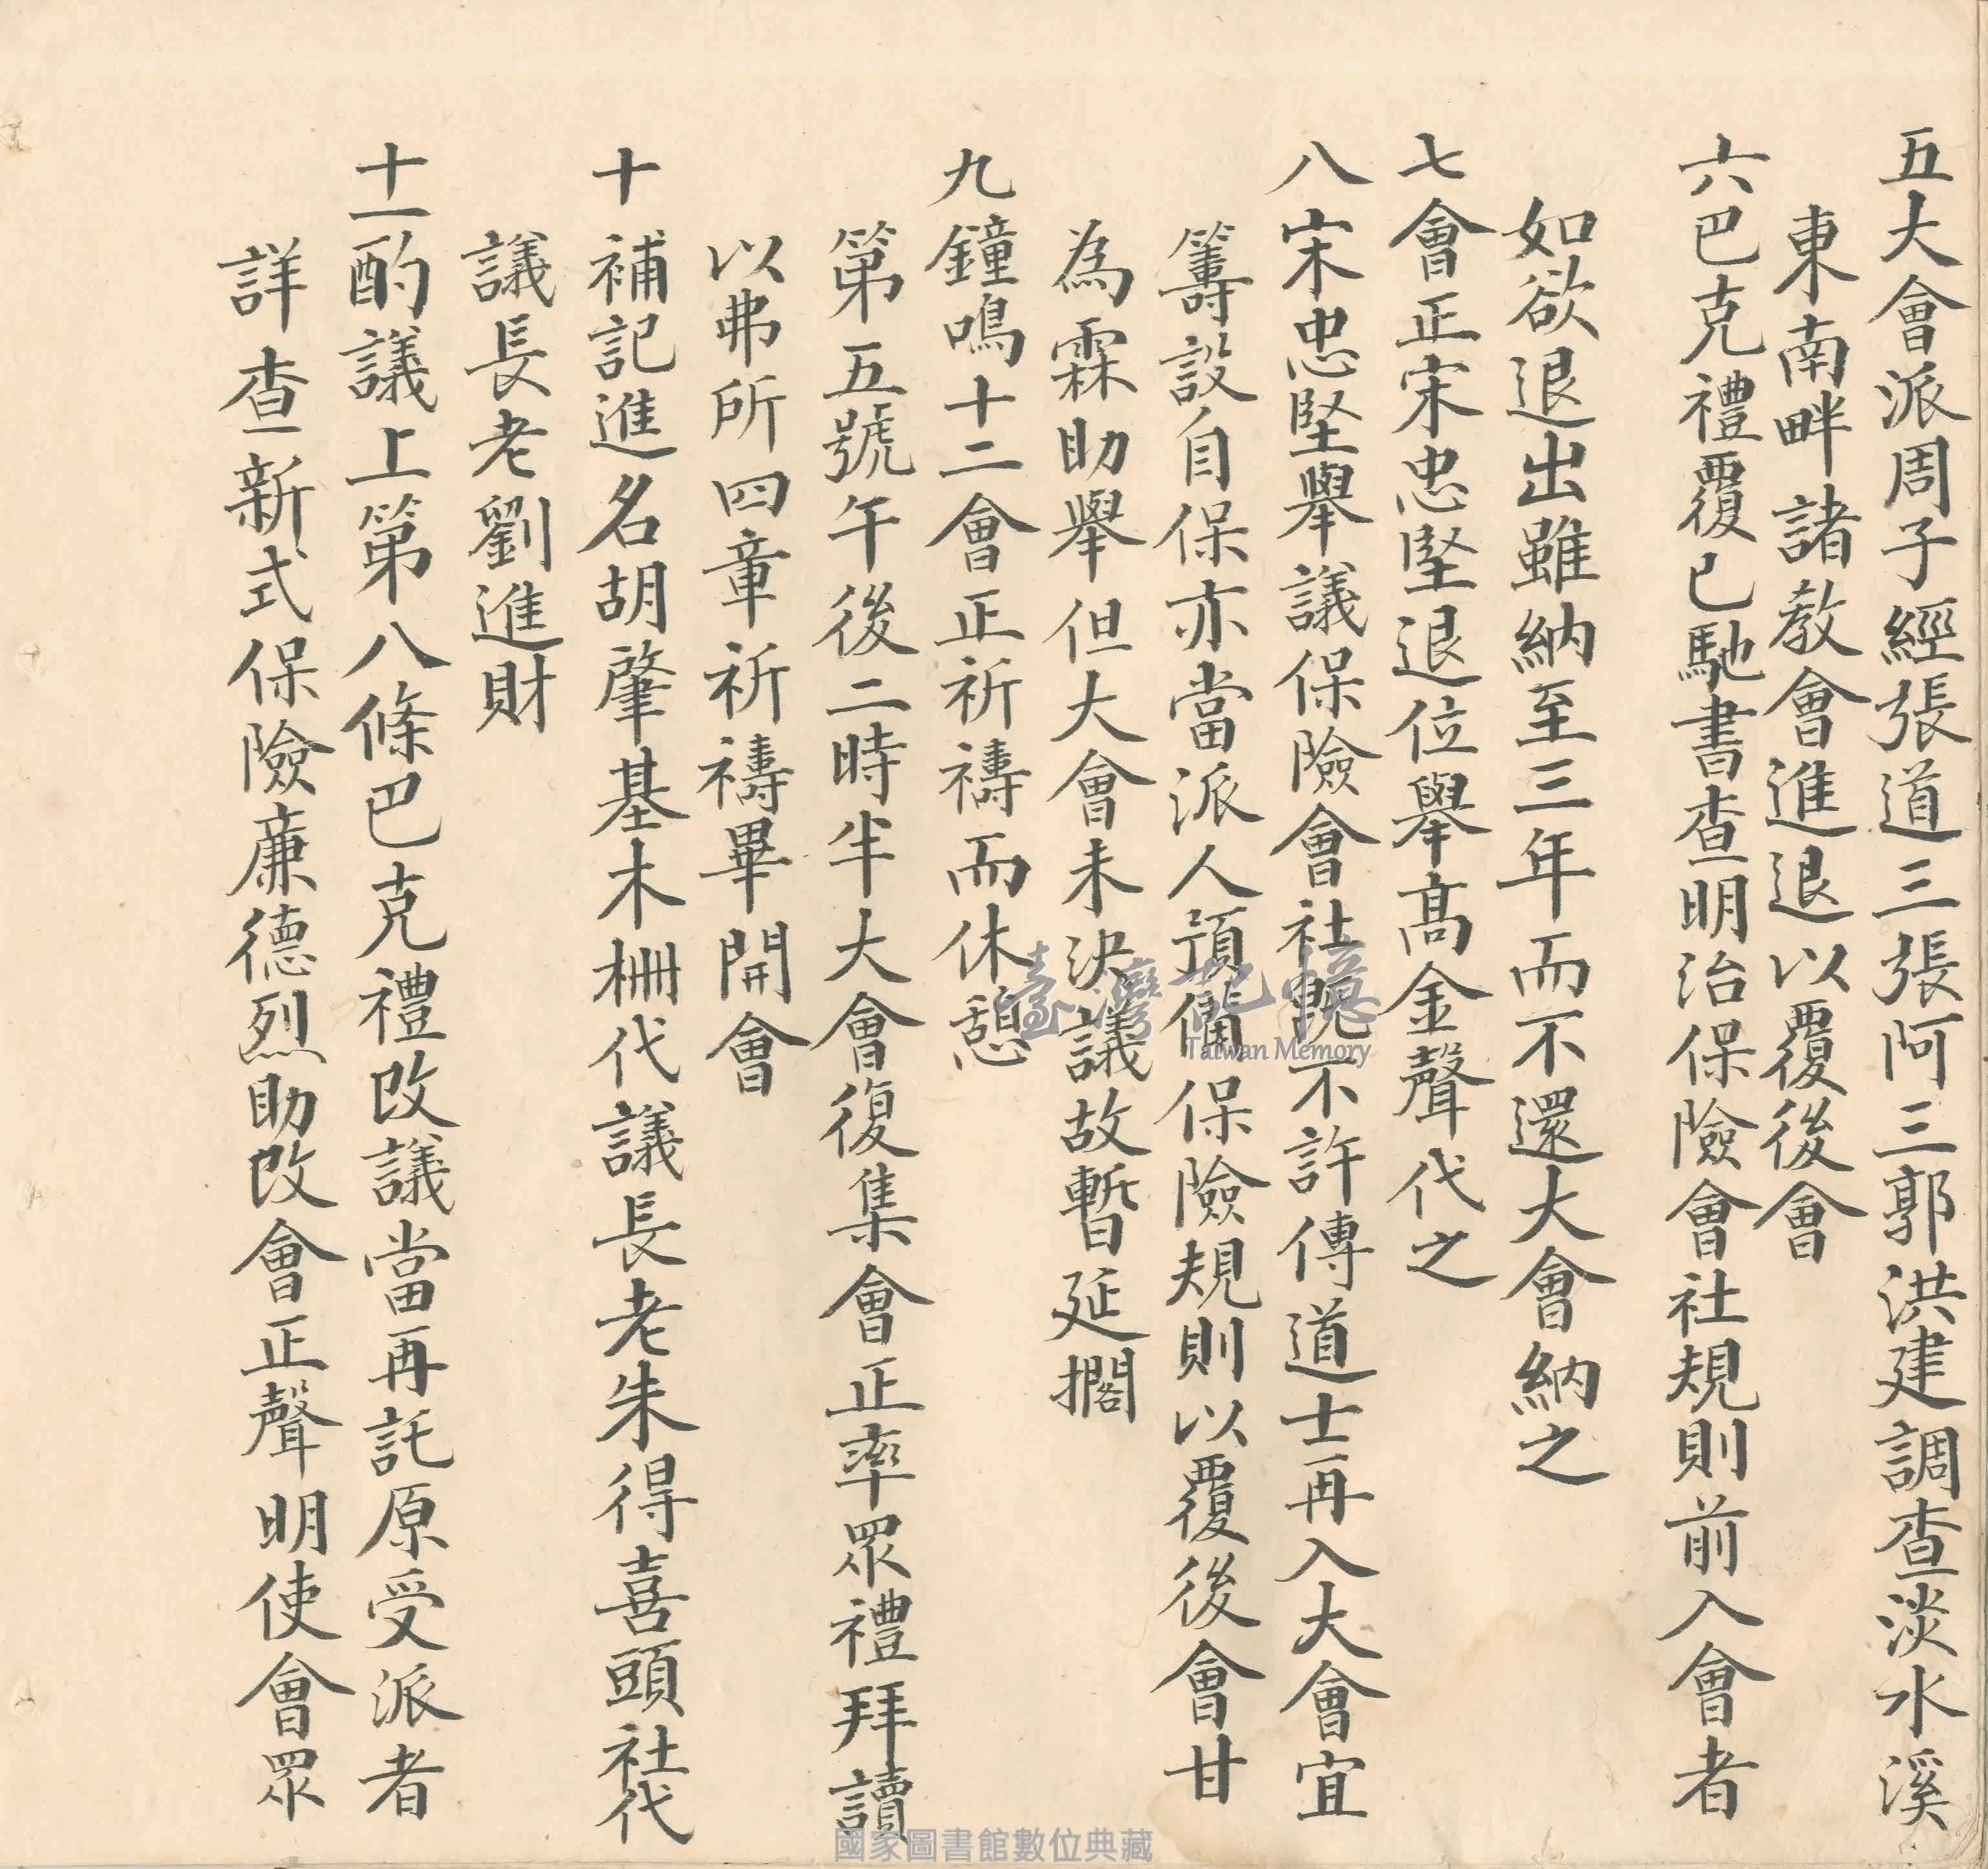 五大會派周子經張道三張阿三郭洪建調查淡水溪
東南畔諸教會進退以覆後會
六巴克禮覆已馳書查明治保險會社規則前入會者
如欲退出雖納至三年而不還大會納之
七會正宋忠堅退位舉高金聲代之
八宋忠堅舉議保險會社既不許傳道士再入大會宜
籌設自保亦當派人預備保險規則以覆後會甘
為霖助舉但大會未決議故暫延擱
九鐘鳴十二會正祈禱而休憩
第五號午後二時半大會復集會正率眾禮拜讀
以弗所四章祈禱畢開會
十補記進名胡肇基木柵代議長老朱得喜頭社代
議長老劉進財
十一酌議上第八條巴克禮改議當再託原受派者
詳查新式保險廉德烈助改會正聲明使會眾
臺灣記憶
Taiwan Memory
國家圖書館數位典藏